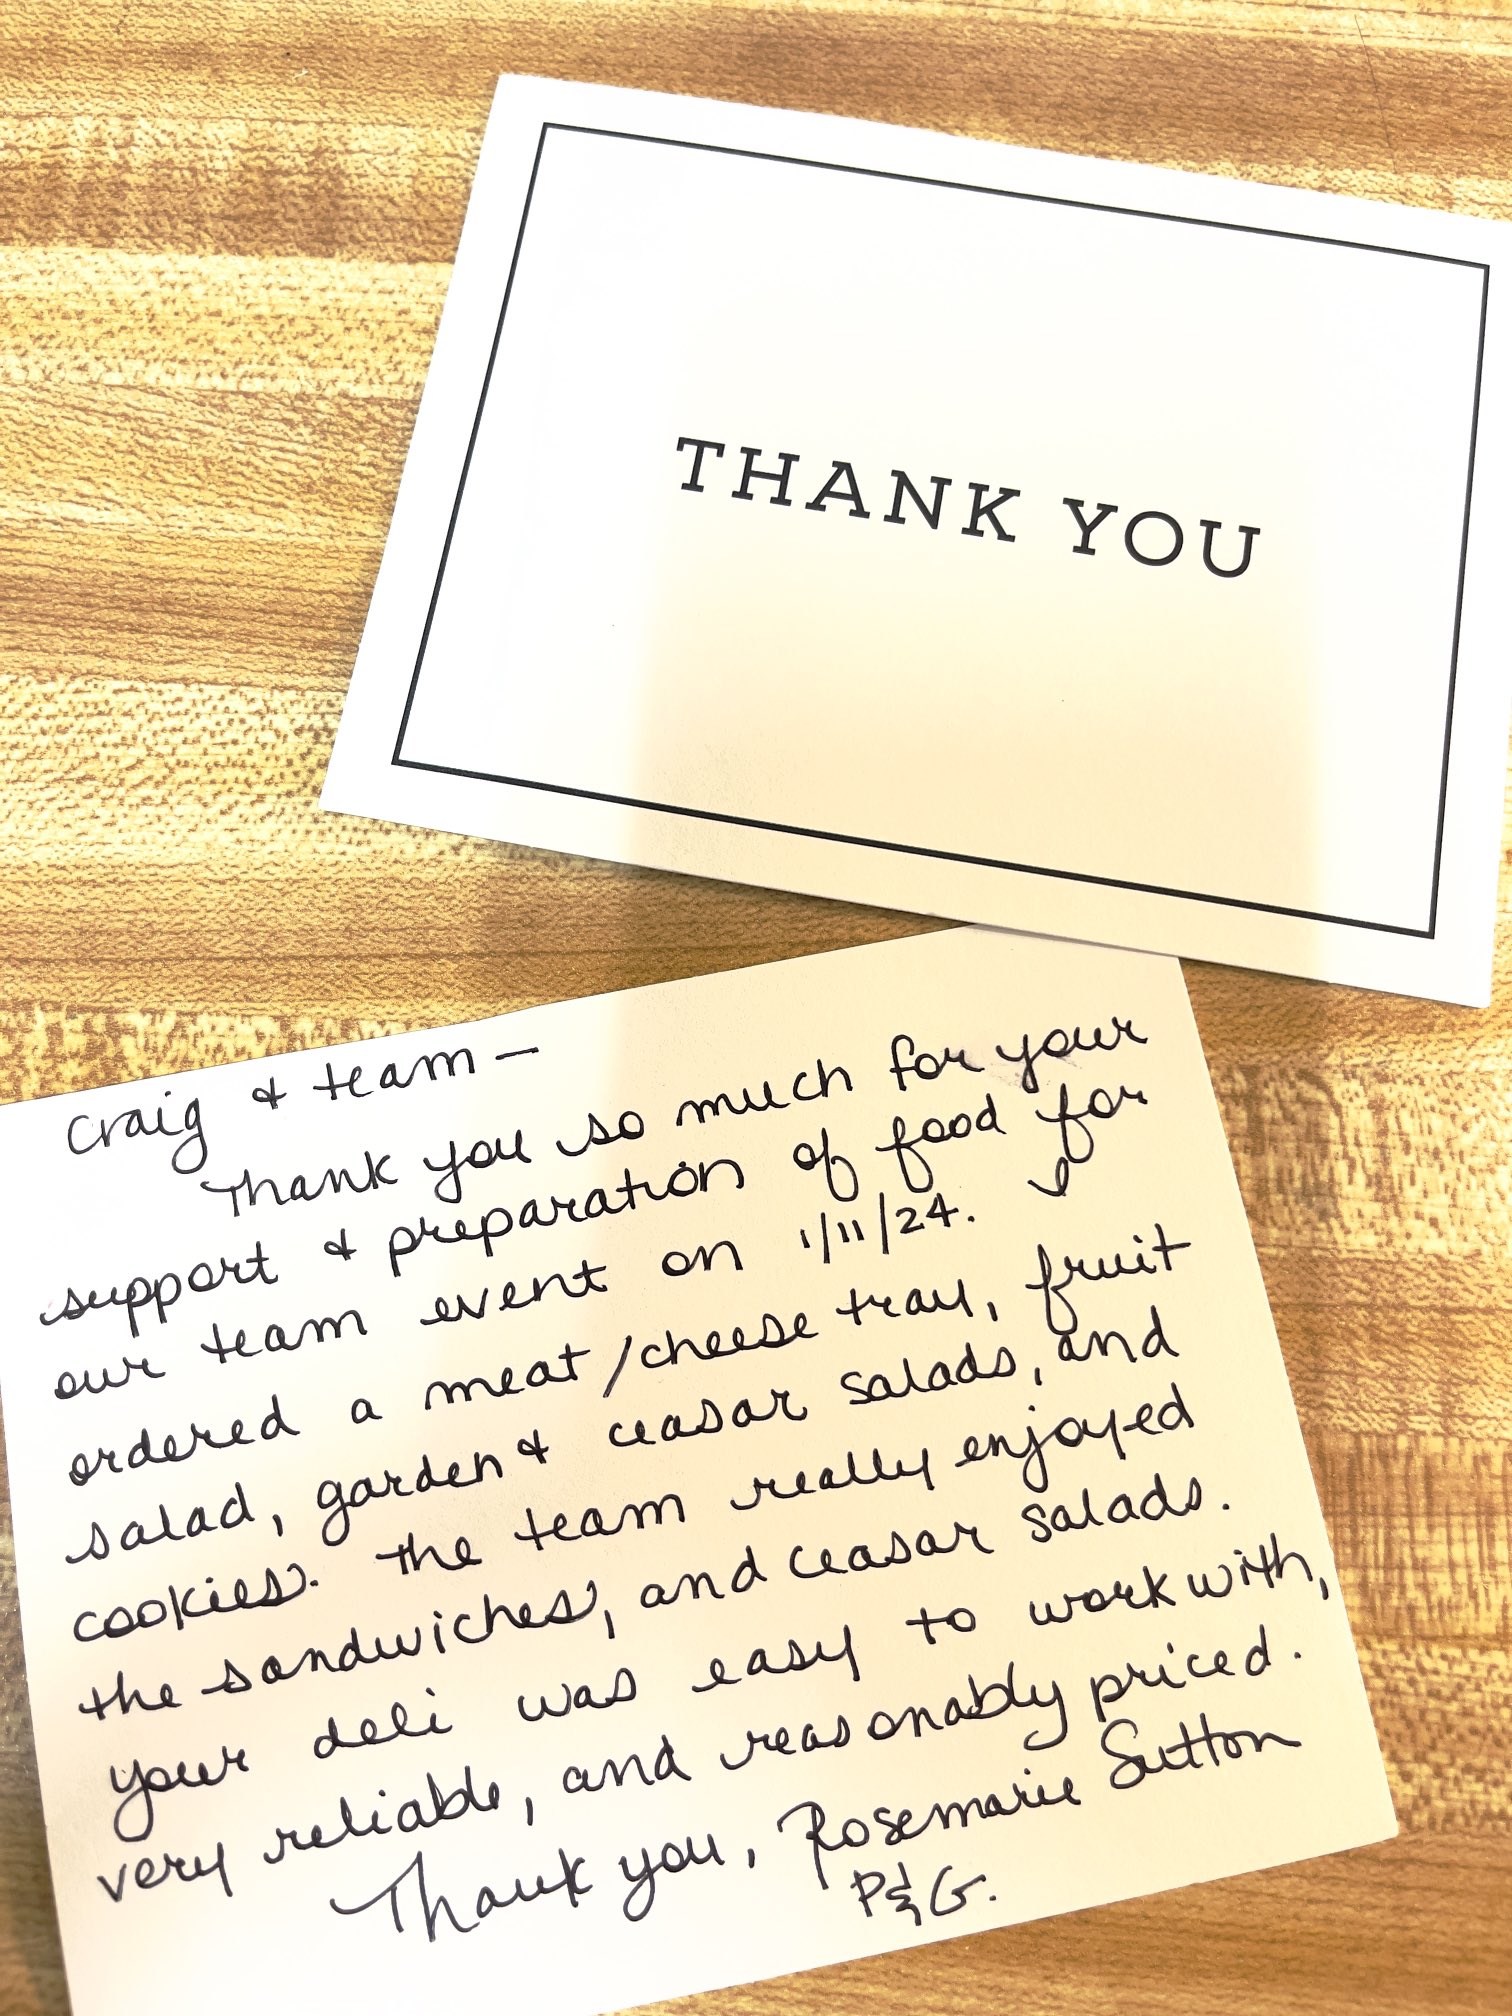 THANK YOU
Craig & team —
Thank you so much for your
support & preparation of food for
our team event on 1/11/24. I
ordered a meat/cheese tray, fruit
salad, garden & ceasar salads, and
cookies. The team really enjoyed
the sandwiches, and ceasar salads.
your deli was easy to work with,
very reliable, and reasonably priced.
Thank you, Rosemarie Sutton
P&G.